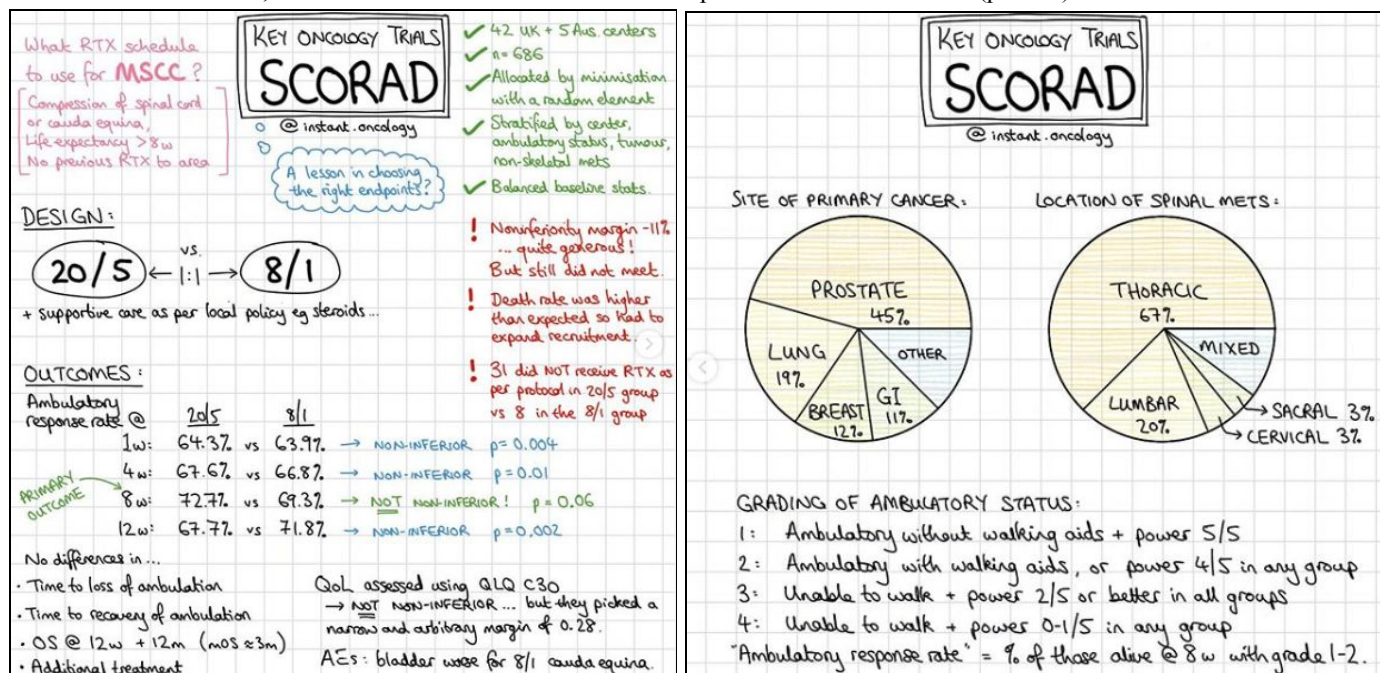 What RTX schedule
to use for MSCC?
Compression of spinal cord
or cauda equina,
Life expectancy >8w
No previous RTX to area
KEY ONCOLOGY TRIALS
SCORAD
@instant.oncology
A lesson in choosing
the right endpoints?
42 UK + 5 Aus. centers
n=686
Allocated by minimisation
with a random element
Stratified by center,
ambulatory status, tumour,
non-skeletal mets
Balanced baseline stats.
! Noninferiority margin -11%
... quite generous!
But still did not meet.
! Death rate was higher
than expected so had to
expand recruitment.
! 31 did NOT receive RTX as
per protocol in 20/5 group
vs 8 in the 8/1 group
DESIGN:
20/5 ← vs. 1:1 → 8/1
+ supportive care as per local policy eg steroids...
OUTCOMES:
Ambulatory
response rate @ 20/5 8/1
1w: 64.3% vs 63.9% → NON-INFERIOR p=0.004
4w: 67.6% vs 66.8% → NON-INFERIOR p=0.01
PRIMARY
OUTCOME
8w: 72.7% vs 69.3% → NOT NON-INFERIOR! p=0.06
12w: 67.7% vs 71.8% → NON-INFERIOR p=0.002
No differences in...
· Time to loss of ambulation
· Time to recovery of ambulation
· OS @ 12w + 12m (mOS ≈3m)
· Additional treatment
QoL assessed using QLQ C30
→ NOT NON-INFERIOR... but they picked a
narrow and arbitrary margin of 0.28.
AEs: bladder worse for 8/1 cauda equina.
KEY ONCOLOGY TRIALS
SCORAD
@instant.oncology
SITE OF PRIMARY CANCER:
PROSTATE
45%
LUNG
19%
BREAST
12%
GI
11%
OTHER
LOCATION OF SPINAL METS:
THORACIC
67%
MIXED
LUMBAR
20%
SACRAL 3%
CERVICAL 3%
GRADING OF AMBULATORY STATUS:
1: Ambulatory without walking aids + power 5/5
2: Ambulatory with walking aids, or power 4/5 in any group
3: Unable to walk + power 2/5 or better in all groups
4: Unable to walk + power 0-1/5 in any group
"Ambulatory response rate" = % of those alive @ 8w with grade 1-2.